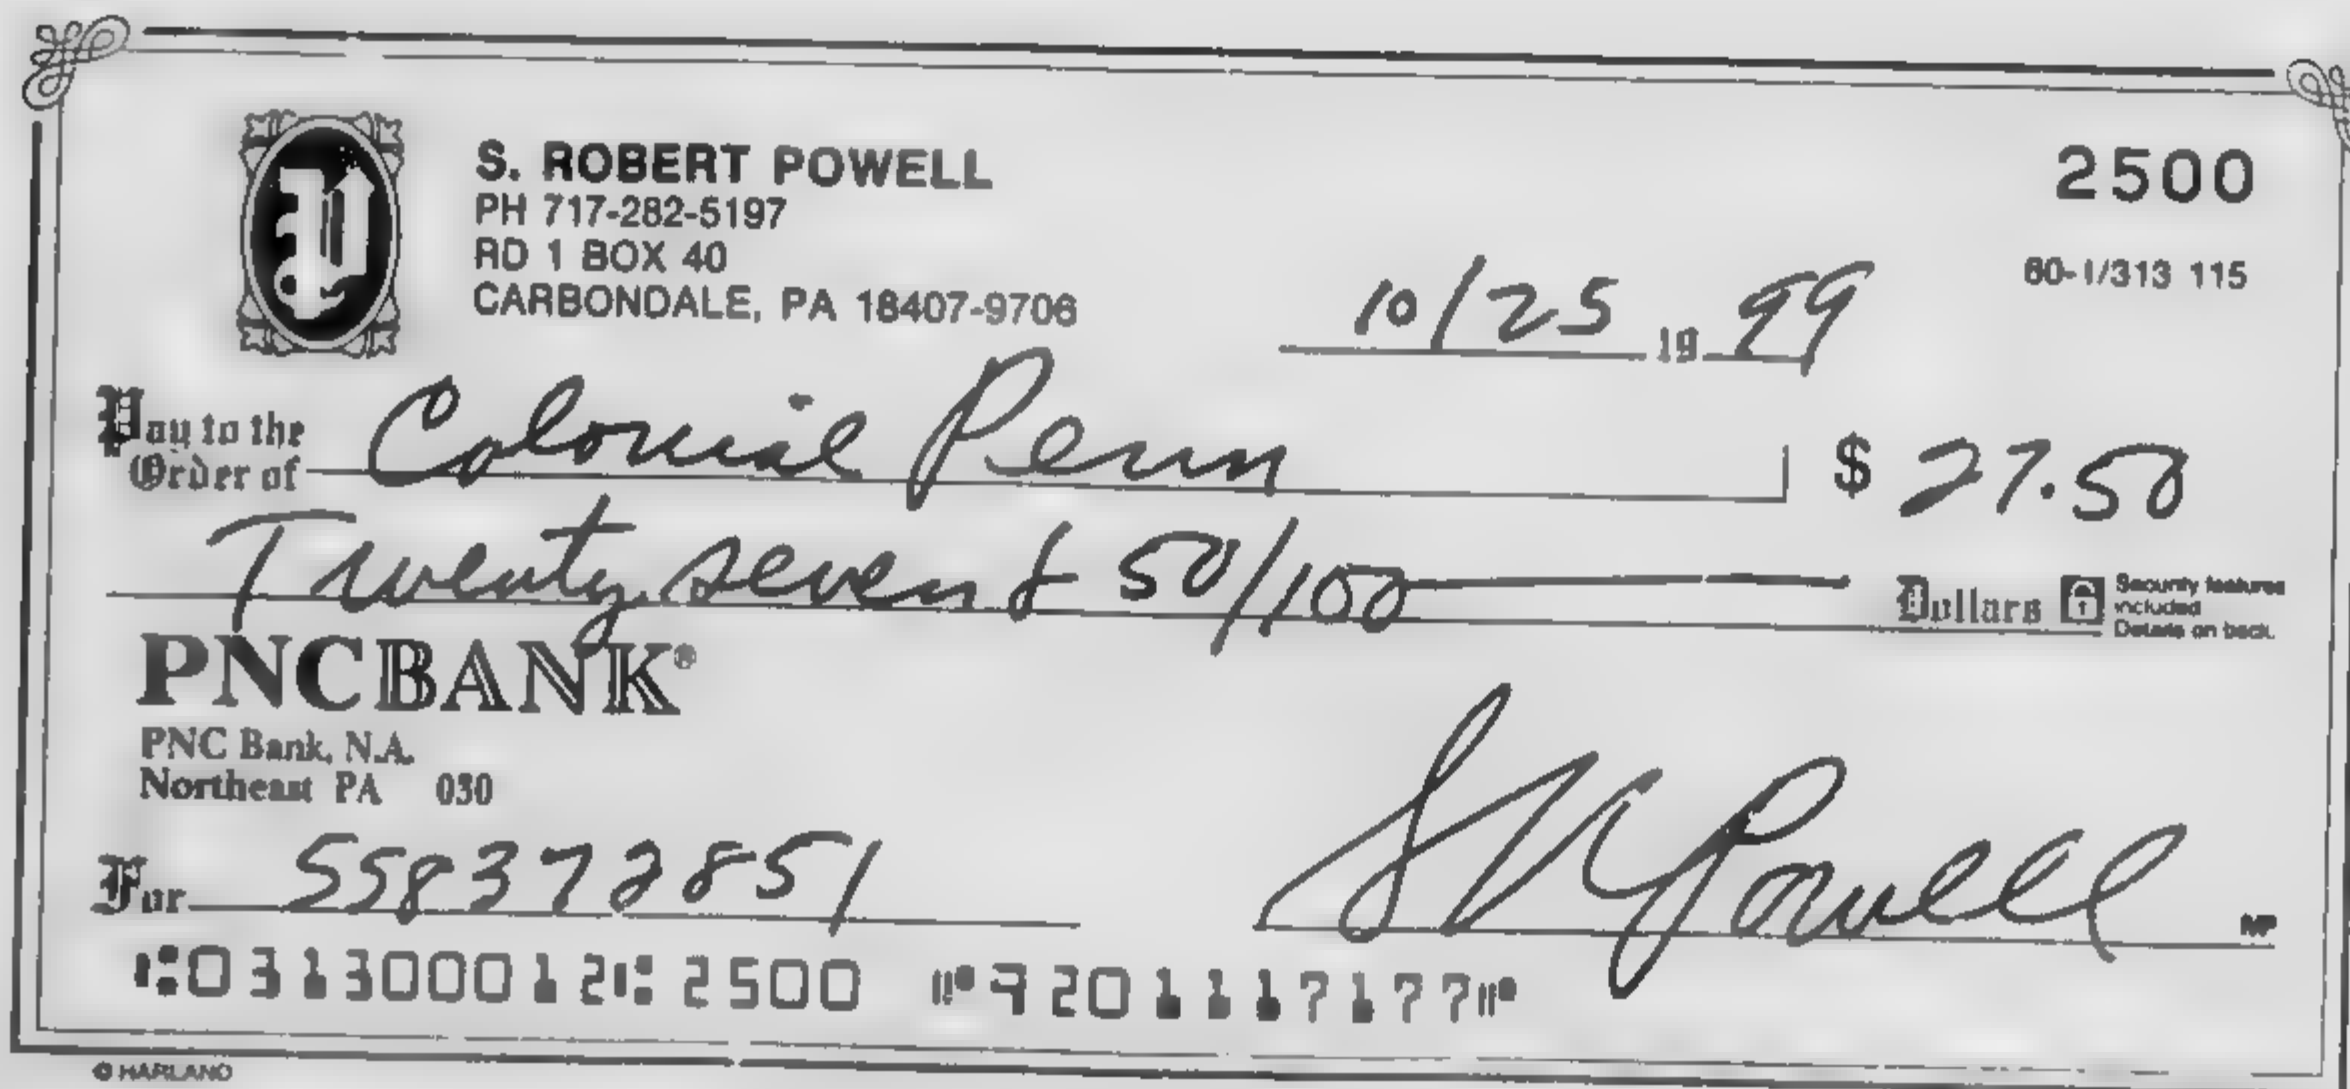 S. ROBERT POWELL
PH 717-282-5197
RD 1 BOX 40
CARBONDALE, PA 18407-9706
2500
60-1/313 115
10/25 19 99
Pay to the Order of Colonial Penn $ 27.50
Twenty seven & 50/100 Dollars
Security features included. Details on back.
PNCBANK®
PNC Bank, N.A.
Northeast PA 030
For 558372851
S R Powell MP
⑆031300012⑆ 2500 ⑈9201117177⑈
© HARLAND